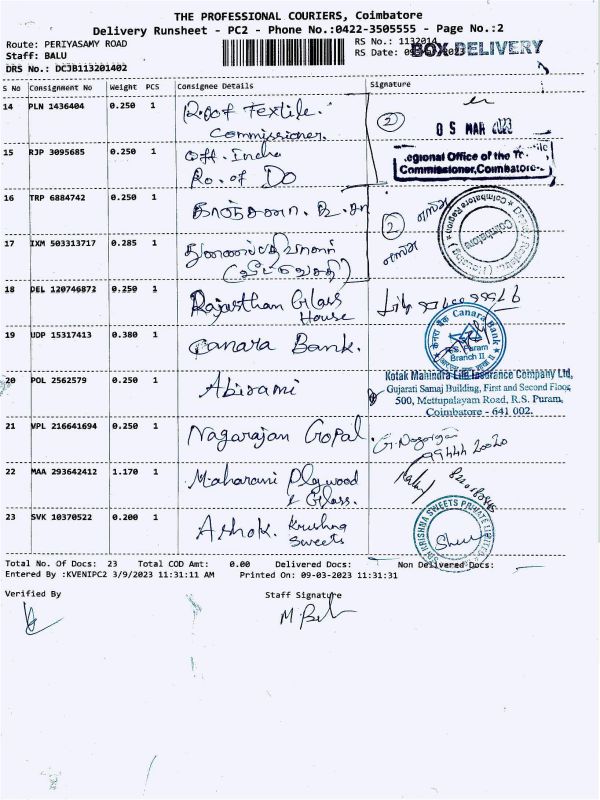 THE PROFESSIONAL COURIERS, Coimbatore
Delivery Runsheet - PC2 - Phone No.:0422-3505555 - Page No.:2
Route: PERIYASAMY ROAD
RS No.: 1132014
BOX DELIVERY
Staff: BALU
RS Date:
DRS No.: DCJB113201402
S No Consignment No Weight PCS Consignee Details Signature
14 PLN 1436404 0.250 1 R.oof Textile.
Commissioner.
2
05 MAR 2023
15 RJP 3095685 0.250 1 Off. Indra
Ro. of DO
egional Office of the
Commissioner, Coimbatore-
16 TRP 6884742 0.250 1
2
Coimbatore
17 IXM 503313717 0.285 1
18 DEL 120746873 0.250 1 Rajasthan Glass
House
19 UDP 15317413 0.380 1 Canara Bank.
Canara Bank
R.S. Puram
Branch II
20 POL 2562579 0.250 1 Abirami
Kotak Mahindra Life Insurance Company Ltd,
Gujarati Samaj Building, First and Second Floor,
500, Mettupalayam Road, R.S. Puram,
Coimbatore - 641 002.
21 VPL 216641694 0.250 1 Nagarajan Gopal. G. Nagarajan
99444 20020
22 MAA 293642412 1.170 1 Maharani Plywood
& Glass.
23 SVK 10370522 0.200 1 Ashok. Krushna
Sweets
SRI KRISHNA SWEETS PRIVATE LIMITED
Total No. Of Docs: 23 Total COD Amt: 0.00 Delivered Docs: Non Delivered Docs:
Entered By :KVENIPC2 3/9/2023 11:31:11 AM Printed On: 09-03-2023 11:31:31
Verified By Staff Signature